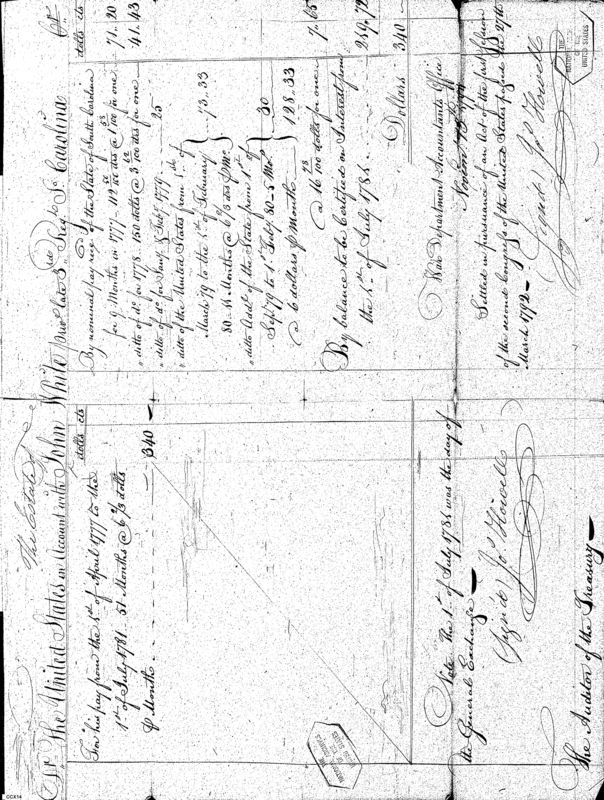 The Estate of
Dr. The United States in Account with John White priv.e late 3.d Reg.t S.o Carolina Cr.
dolls cts
For his pay from the 4th of April 1777 to the
1st of July 1781. 51 Months @ 6 2/3 dolls
⅌ Month - - - - - 340
Note The 1st of July 1781 was the day of
the General Exchange
Signed Jo.s Howell
The Auditor of the Treasury
dolls cts
By nominal pay rec.d of the State of South Carolina
for 9 Months in 1777 @ 1 100 for one 71. 20
ditto of do for 1778. 150 dolls @ 3 100 dls for one 41. 43
ditto of do for Jan.y & Feb.y 1779 25
ditto of the United States from 1st of
March 79 to the 1st of February
80 - 11 Months @ 6 2/3 dls ⅌ Mo. 73. 33
ditto Addl. of the State from 1st of
Sep.t 79 to 1st Feb.y 80 - 5 Mos
@ 6 dollars ⅌ Month 30
128. 33
@ 16 100 dolls for one 7. 65
By balance to be Certified on Interest from
the 1st of July 1781
Dollars 340
War Department Accountants Office
Novem.r
Settled in pursuance of an Act of the first Session
of the second Congress of the United States passed the 27th
March 1792
Signed Jo.s Howell
THE
NATIONAL ARCHIVES
OF THE
UNITED STATES
CCX14